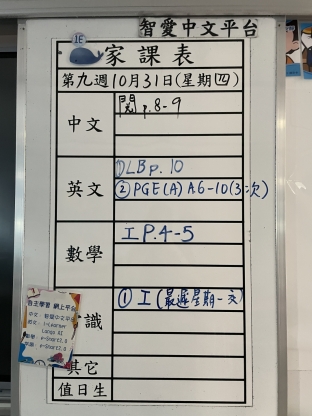 智愛中文平台
1E
家課表
第九週10月31日(星期四)
中文
閱 p.8-9
英文
①LB p. 10
②PGE(A) A6-10(3次)
數學
工 P.4-5
識
① 工 (最遲星期一交)
自主學習 網上平台
中文: 智愛中文平台
英文: i-Learner
數學: e-Smart2.0
其它
值日生